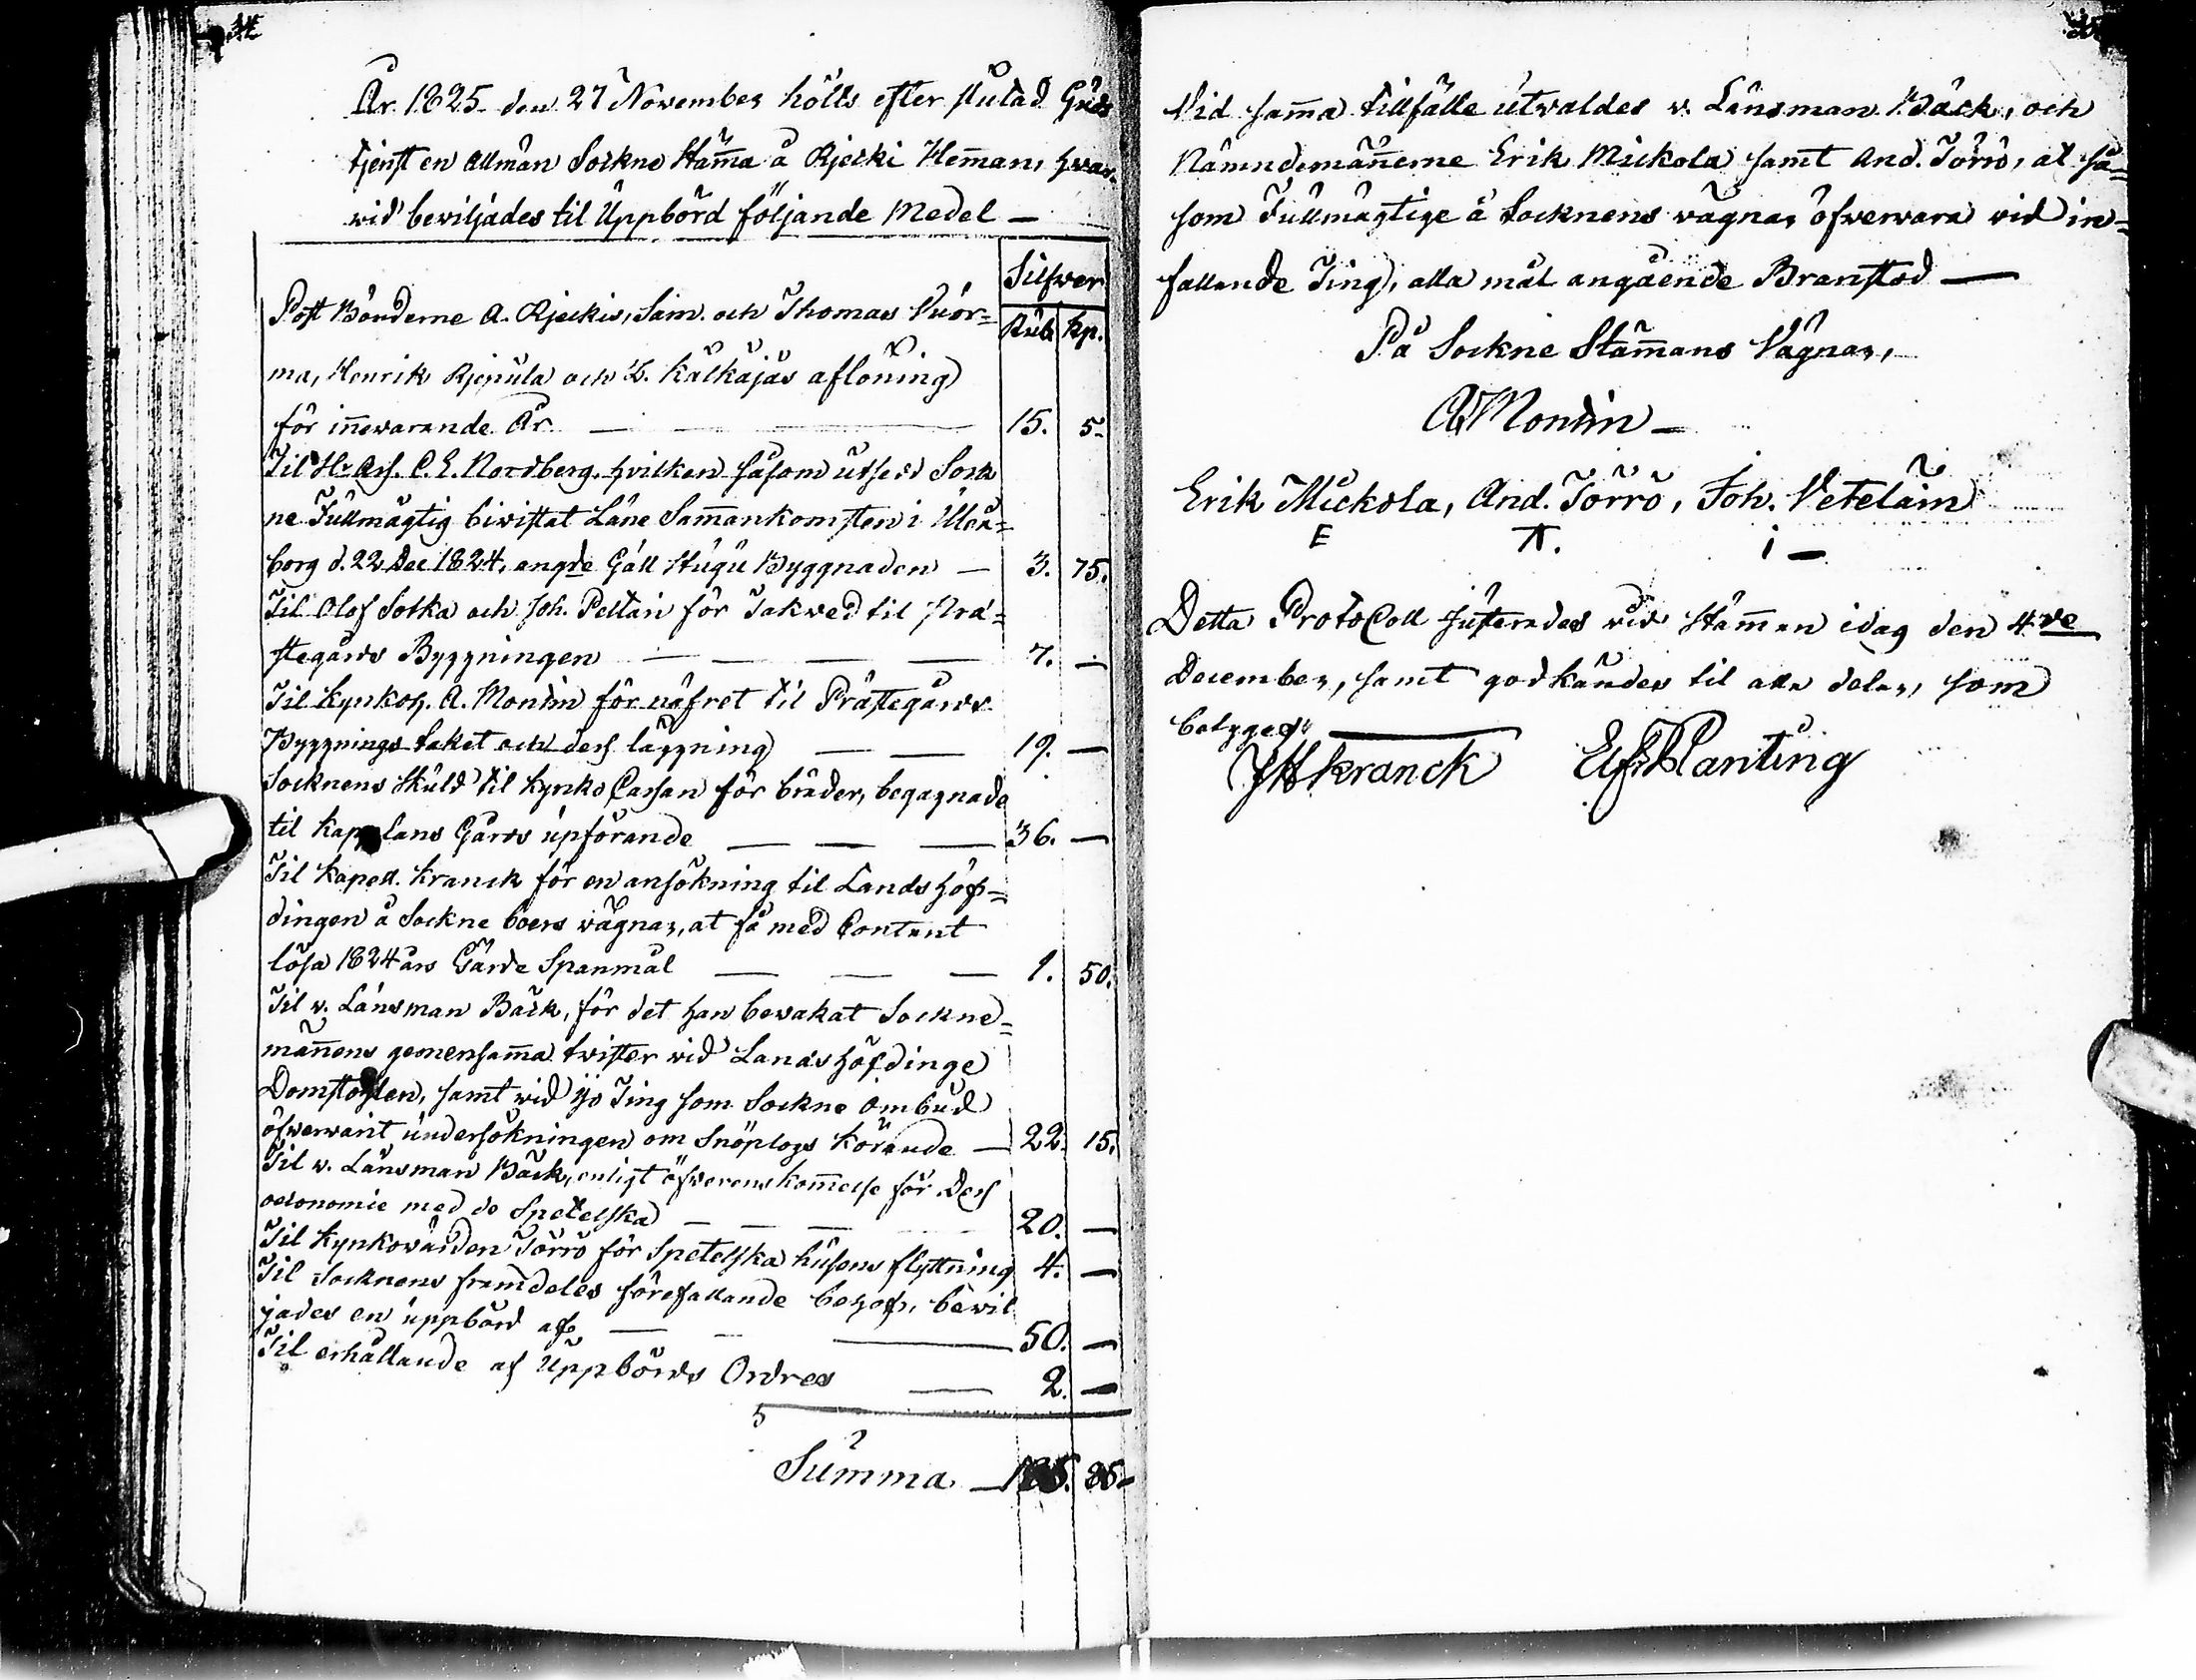 År 1825 den 27 November hölts efter slutad Guds
tjenst en Allmän Sockne Stämma å Rjecki Hemman, hvar-
wid beviljades til Uppbörd följande Medel —
Silfwer
Rub. kp.
Post Bönderne A. Rjeckis, Sam. och Thomas Vuor=
ma, Henrik och Kälkäjäs aflöning
för innevarande År — 15. 5.
Til Hr C. E. Nordberg, hvilken såsom utsedd Sock
ne Fullmägtig bivistat Läne Sammankomsten i Uleå=
borg d. 22 Dec 1824, angde Gåll Stugu Byggnaden — 3. 75.
Til Olof Sotka och Joh. Peltari för Takwed til Prä=
stegårds Byggningen — — — 7. —
Til Kyrkoh. A. Montin för näfret til Prästegårds
Byggnings taket och dess läggning — — 19. —
Socknens Skuld til Kyrko Cassan för bräder, begagnade
til Kapplans Gårds upförande — — — 36. —
Til Kapell. Kranck för en ansökning til Landshöf=
dingen å Sockne boers vägnar, at få med Contant
lösa 1824 års Gärde Spanmål — — — 1. 50.
Til v. Länsman Bäck, för det han bevakat Sockne=
männens gemensamma twister wid Landshöfdinge
Domstolen, samt wid Ijo Ting som Sockne Ombud
öfwerwarit undersökningen om Snöplogs körande — 22. 15.
Til v. Länsman Bäck, enligt öfwerenskommelse för dess
oeconomie med de Spetelska — — — 20. —
Til Kyrkovärden Törrö för Spetelska husens flyttning 4. —
Til Socknens framdeles förefallande behof, bevil
jades en uppbörd af — — — 50. —
Til erhållande af Uppbörds Ordres — 2. —
Summa —
Vid samma tillfälle utvaldes v. Länsman Bäck, och
Nämndemännerne Erik Mickola samt And. Törrö, at så=
som Fullmägtige å Socknens vägnar öfwervara vid in=
fallande Ting, alla mål angående Branstod —
På Sockne Stämmans Vägnar,
A Montin —
Erik Mickola, And. Törrö, Joh. Veteläin
E T. i —
Detta ProtoColl justerades wid Stämman idag den 4de
December, samt godkändes til alla delar, som
betyges —
JH Kranck Planting